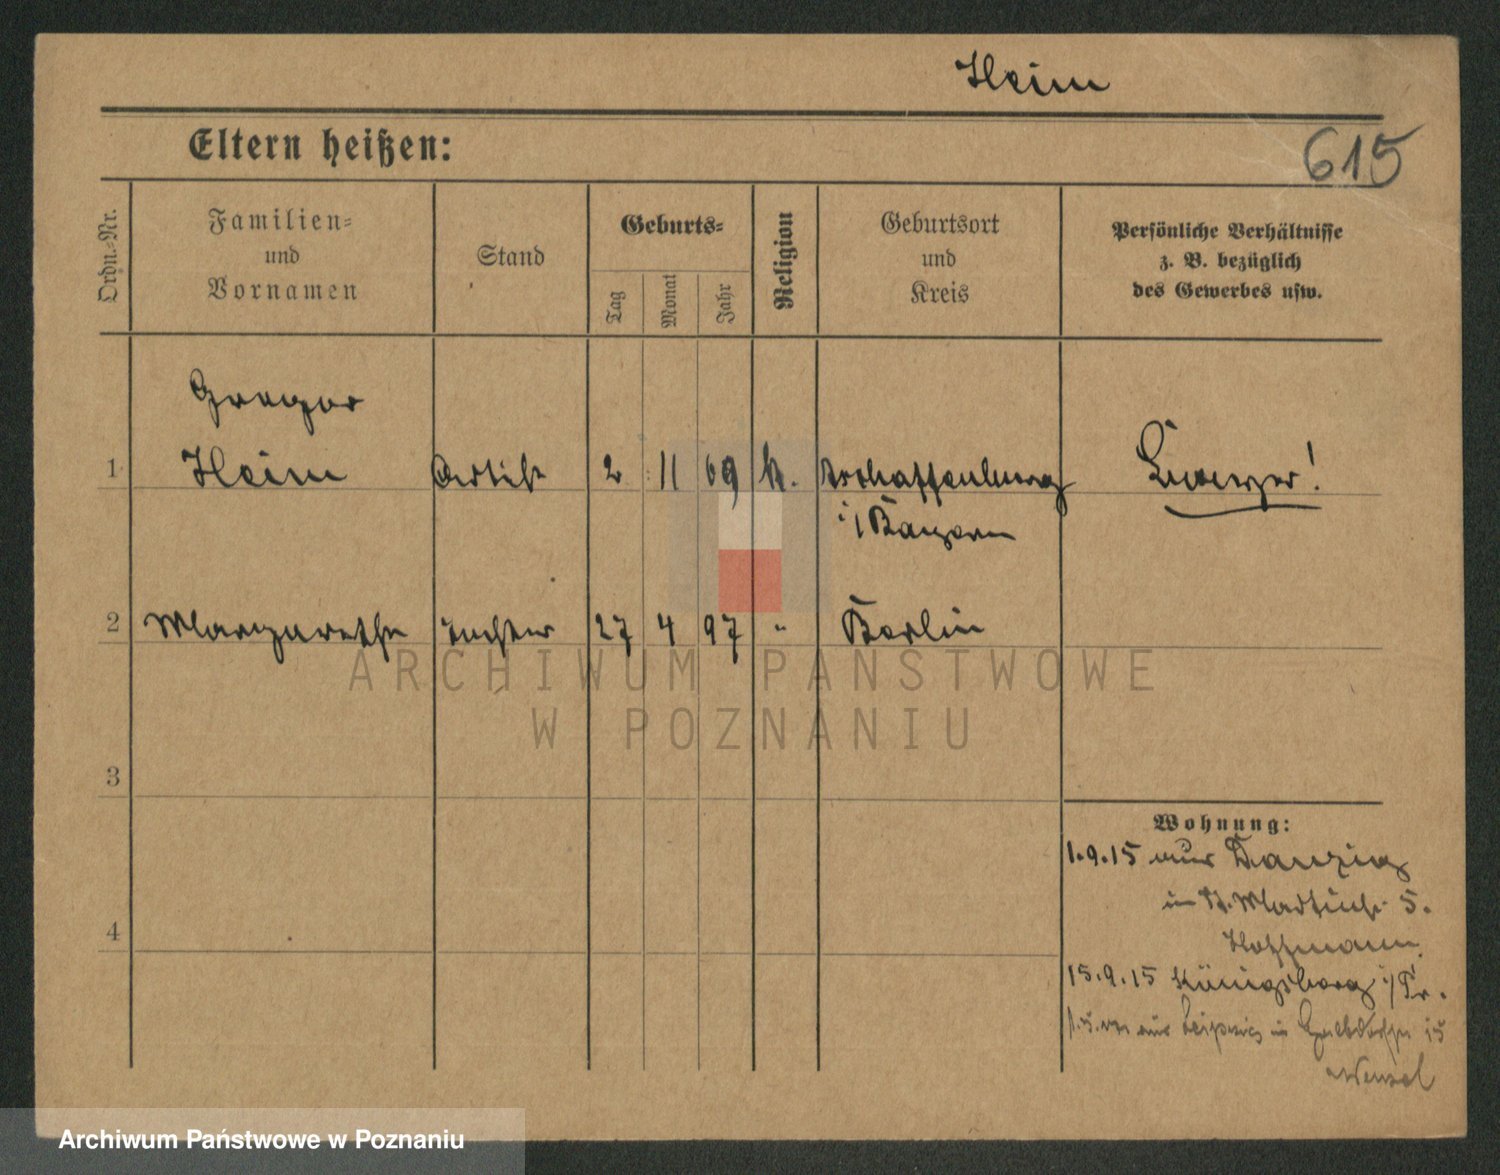 Heim
615
Eltern heißen:
Ordn.-Nr.
Familien-
und
Vornamen
Stand
Geburts-
Tag
Monat
Jahr
Religion
Geburtsort
und
Kreis
Persönliche Verhältnisse
z. B. bezüglich
des Gewerbes usw.
Gregor
1 Heim Artist 2 11 69 k. Aschaffenburg
i/Bayern
2 Margarethe Tochter 27 4 97 " Berlin
3
4
Wohnung:
1.9.15 aus Danzig
in St. Martinstr. 5.
Hoffmann
15.9.15 Königsberg i/Pr.
aus Leipzig in 15
Wenzel
ARCHIWUM PAŃSTWOWE
W POZNANIU
Archiwum Państwowe w Poznaniu